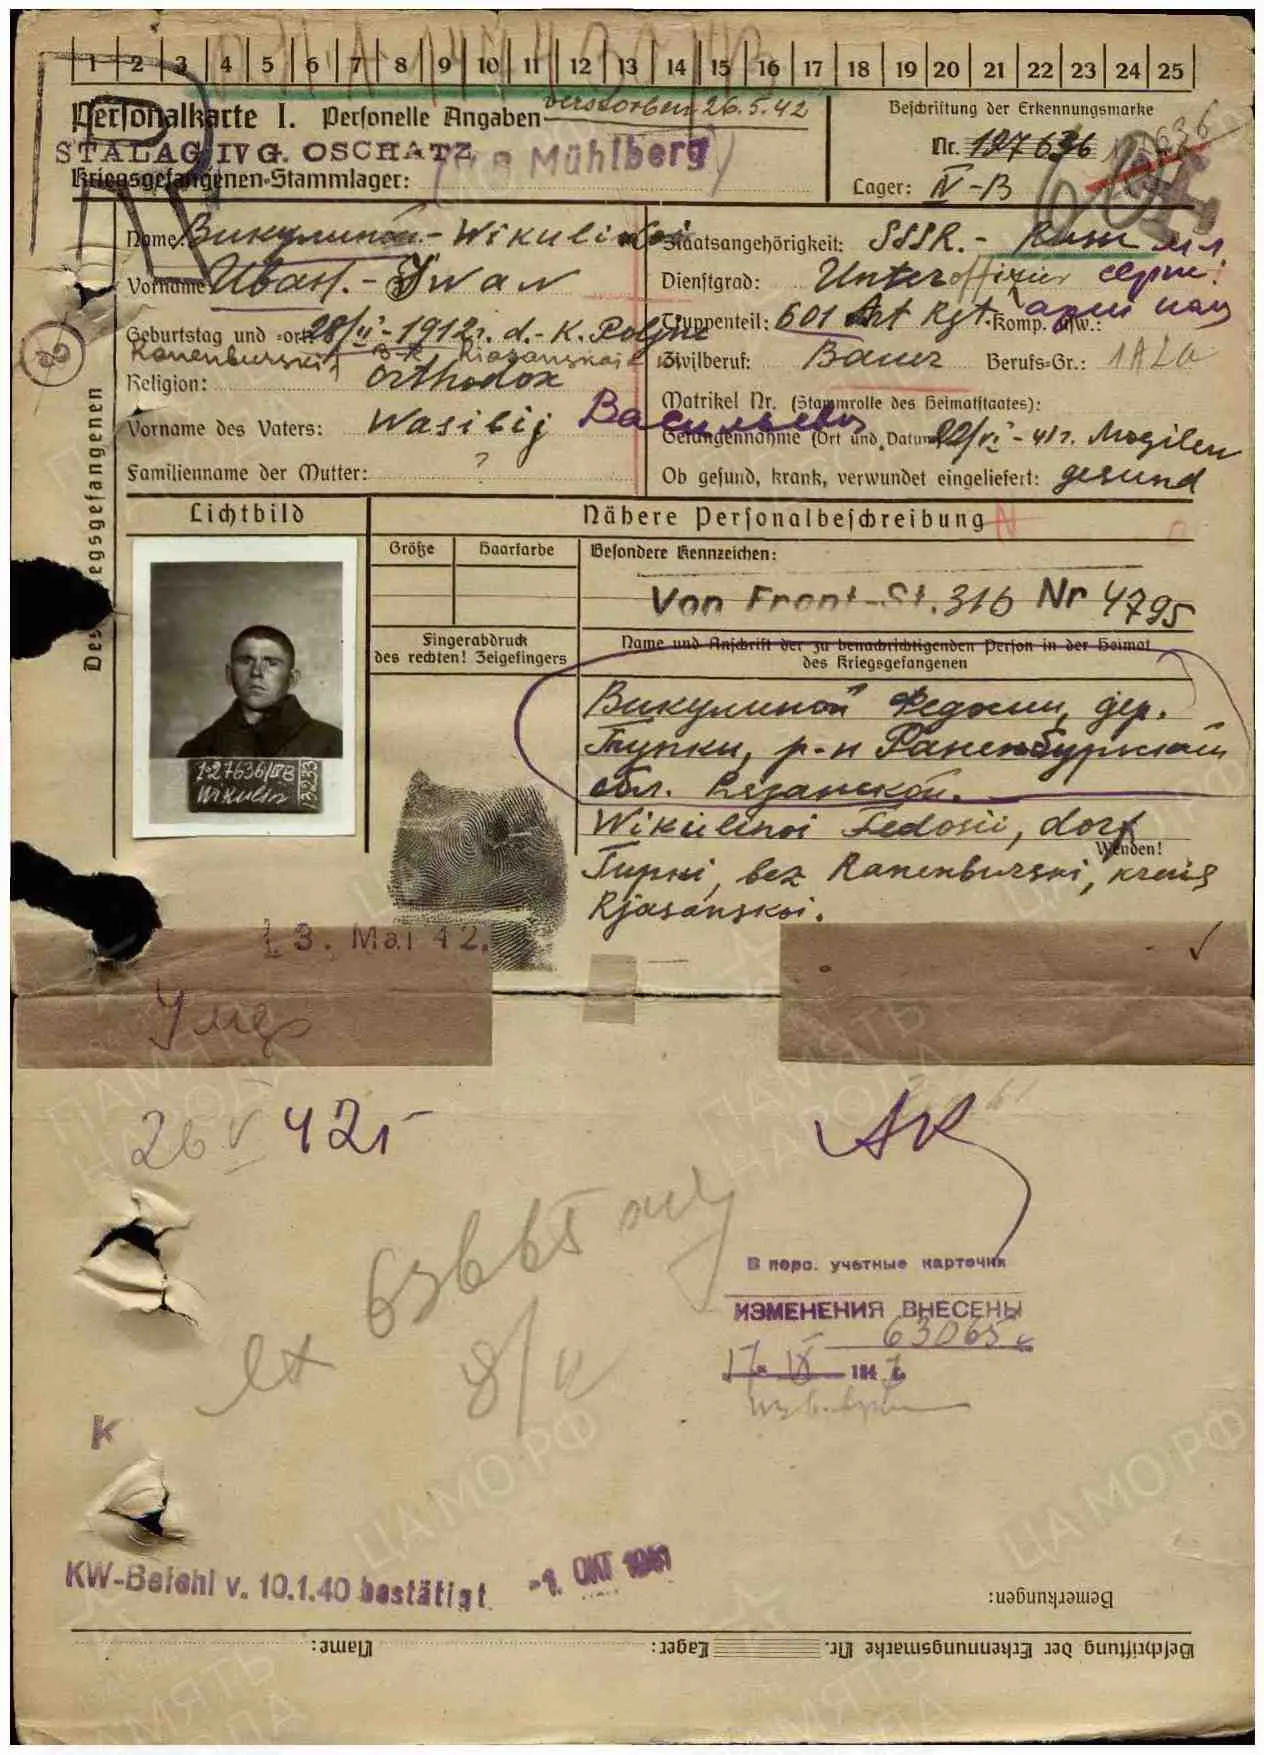 1 2 3 4 5 6 7 8 9 10 11 12 13 14 15 16 17 18 19 20 21 22 23 24 25
Personalkarte I. Personelle Angaben
verstorben 26.5.42
Beschriftung der Erkennungsmarke
STALAG IV G. OSCHATZ
Mühlberg
Nr. 127636
Kriegsgefangenen-Stammlager:
Lager: IV-B
Des Kriegsgefangenen
Name: Викулиной - Wikulinoi
Staatsangehörigkeit: SSSR. -
Vorname: Иван. - Iwan
Dienstgrad: Unteroffizier серж.
Geburtstag und -ort: 1912г. d. - K. Poljne
Truppenteil: 601 Art Rgt. Komp. usw.:
Ranenburski
Zivilberuf: Bauer Berufs-Gr.:
Religion: Orthodox
Matrikel Nr. (Stammrolle des Heimatstaates):
Vorname des Vaters: Wasilij Васильевич
Gefangennahme (Ort und Datum): 22/VI - 41г. Mogilew
Familienname der Mutter: ?
Ob gesund, krank, verwundet eingeliefert: gesund
Lichtbild
Nähere Personalbeschreibung
Größe
Haarfarbe
Besondere Kennzeichen:
Von Front-St. 316 Nr 4795
Fingerabdruck
des rechten! Zeigefingers
Name und Anschrift der zu benachrichtigenden Person in der Heimat
des Kriegsgefangenen
Викулиной Федосии, дер.
Тупки, р-н Раненбургский
обл. Рязанской.
127636/IVB
Wikulin
Wikulinoi Fedosii, dorf
Wenden!
Tupki, bez Ranenburski, kreis
Rjasanskoi.
13. Mai 42.
Умер
26 V 42г
В перс. учетные карточки
ИЗМЕНЕНИЯ ВНЕСЕНЫ
63065
17 IX 1947
К
KW-Befehl v. 10.1.40 bestätigt
-1. ОКТ 1941
Bemerkungen:
Beschriftung der Erkennungsmarke Nr. Lager: Name:
ПАМЯТЬ НАРОДА
ЦАМО.РФ